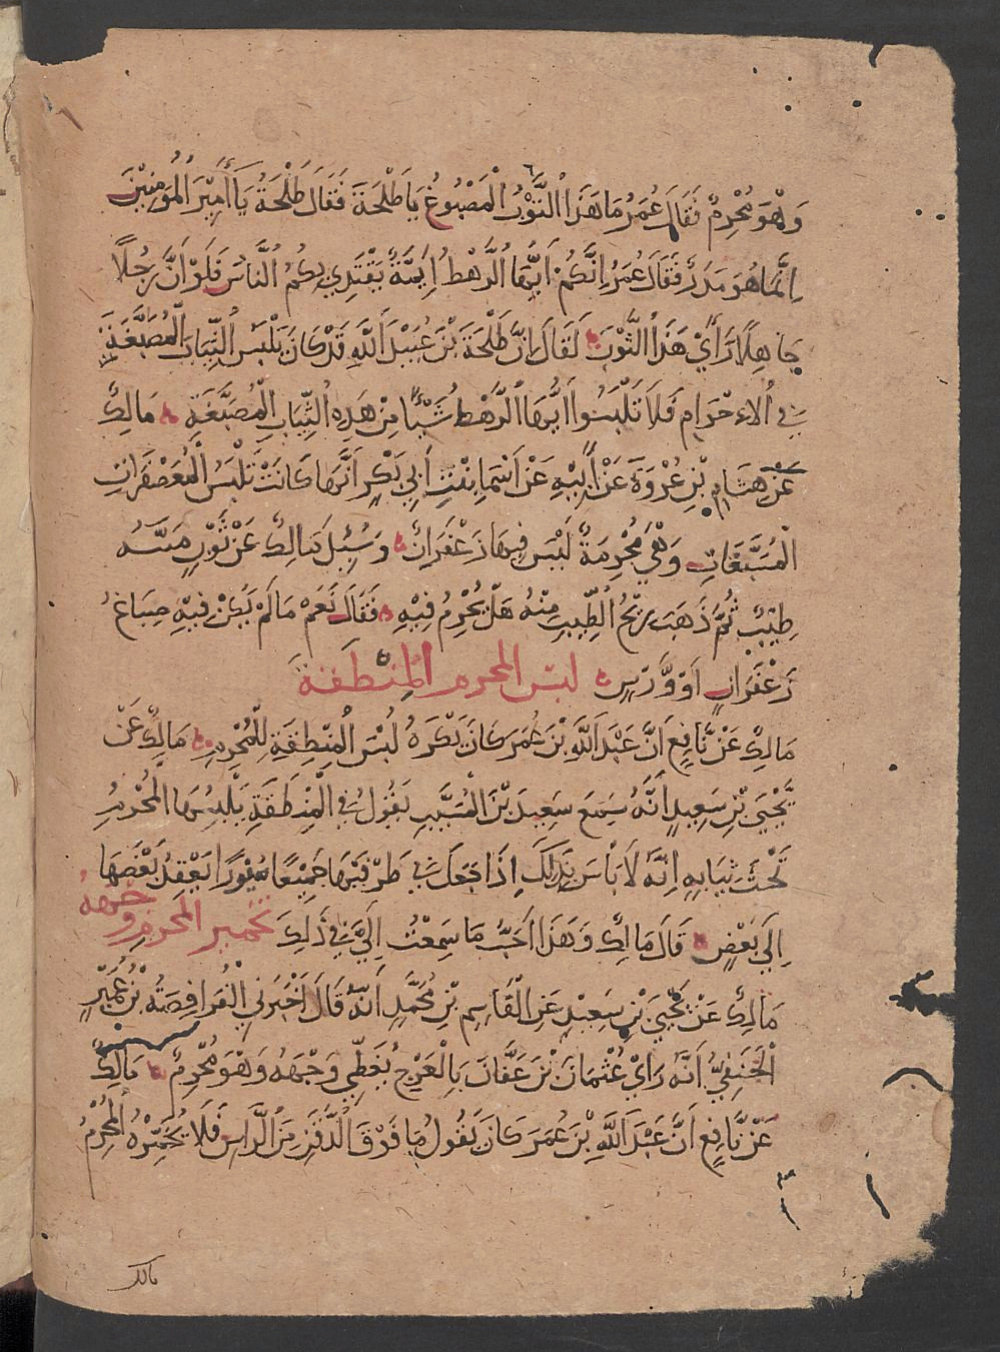 وَهْوَ مُحْرِمٌ فَقَالَ عُمَرُ مَا هَذَا الثَّوْبُ الْمَصْبُوغُ يَا طَلْحَةَ فَقَالَ طَلْحَةُ يَا أَمِيْرَ الْمُؤمِنِيْنَ
اِنَّمَا هُوَ مَدَرٌ فَقَالَ عُمَرُ اِنَّكُمْ اَيُّهَا الرَّهْطُ اَيِمَّةٌ يَقْتَدِي بِكُمُ النَّاسُ فَلَوْ اَنَّ رَجُلًا
جَاهِلًا رَأَيْ هَذَا الثَّوْبَ لَقَالَ اِنَّ طَلْحَةَ بْنَ عُبَيْدِ اَللَّهِ قَدْ كَانَ يَلْبَسُ الثِّيَابَ الْمُصَبَّغَةَ
فِي الْاِحْرَامِ فَلَا تَلْبَسُوا اَيُّهَا الرَّهْطُ شَيْئًا مِنْ هَذِهِ الثِّيَابِ الْمُصَبَّغَةِ مَالِكٌ
عَنْ هِشَامِ بْنِ عُرْوَةَ عَنْ أَبِيْهِ عَنْ اَسْمَا بِنْتِ أَبِي بَكْرٍ اَنَّهَا كَانَتْ تَلْبَسُ الْمُعَصْفَرَاتِ
الْمُشَبَّعَاتِ وَهْيَ مُحْرِمَةٌ لَيْسَ فِيهَا زَعْفَرَانٌ وَسُئِلَ مَالِكٌ عَنْ ثَوْبٍ مَسَّهُ
طِيْبٌ ثُمَّ ذَهَبَ رِيْحُ الطِّيبِ مِنْهُ هَلْ يُحْرِمُ فِيْهِ فَقَالَ نَعَمْ مَالَمْ يَكُنْ فِيْهِ صِبَاغُ
زَعْفَرَانٍ اَوْ وَرْسٍ لبس المحرم المنطقة
مَالِكٌ عَنْ نَّافِعٍ اَنَّ عَبْدَ اَللَّهِ بْنَ عُمَرَ كَانَ يَكْرَهُ لُبْسَ الْمِنْطِقَةِ لِلْمُحْرِمِ مَالِكٌ عَنْ
يَحْيَى بْنِ سَعِيدٍ اَنَّهُ سَمِعَ سَعِيدَ بْنَ الْمُسَيَّبِ يَقُولُ فِي الْمِنْطَقَةِ يَلْبَسُهَا الْمُحْرِمُ
تَحْتَ ثِيَابِهِ اِنَّهُ لَا بَاسَ بِذَلِكَ اِذَا جَعَلَ فِي طَرَفَيْهَا جَمِيْعًا سُيُورًا يَعْقِدُ بَعْضَهَا
اِلَي بَعْضٍ قَالَ مَالِكٌ وَهَذَا اَحَبُّ مَا سَمِعْتُ اِلَيَّ فِي ذَلِكَ تخمير المحرم وجهه
مَالِكٌ عَنْ يَحْيَي بْنِ سَعِيْدٍ عَنِ الْقَاسِمِ بْنِ مُحَمَّدٍ اَنَّهُ قَالَ اَخْبَرَنِي الْفُرَافِصَةُ بْنُ عُمَيْرٍ
الْحَنَفِيُّ اَنَّهُ رَاَيْ عُثْمَانَ بْنَ عَفَّانَ بِالْعَرْجِ يُغَطِّي وَجْهَهُ وَهْوَ مُحْرِمٌ مَالِكٌ
عَنْ نَّافِعٍ اَنَّ عَبْدَ اَللَّهِ بْنَ عُمَرَ كَانَ يَقُولُ مَا فَوْقَ الذَّقَنِ مِنَ الرَّاسِ فَلَا يُخَمِّرْهُ الْمُحْرِمُ
مالك